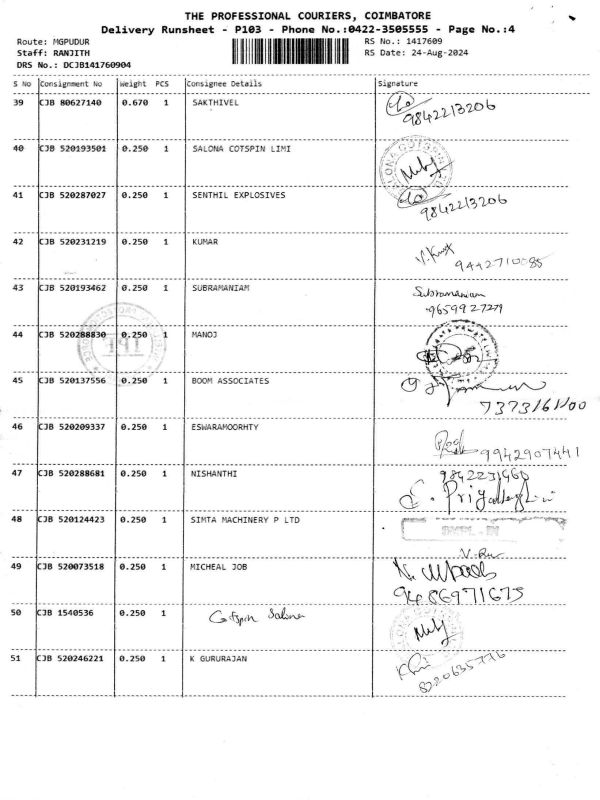 THE PROFESSIONAL COURIERS, COIMBATORE
Delivery Runsheet - P103 - Phone No.:0422-3505555 - Page No.:4
Route: MGPUDUR RS No.: 1417609
Staff: RANJITH RS Date: 24-Aug-2024
DRS No.: DCJB141760904
S No Consignment No Weight PCS Consignee Details Signature
39 CJB 80627140 0.670 1 SAKTHIVEL
9842213206
40 CJB 520193501 0.250 1 SALONA COTSPIN LIMI
41 CJB 520287027 0.250 1 SENTHIL EXPLOSIVES
9842213206
42 CJB 520231219 0.250 1 KUMAR
9442710085
43 CJB 520193462 0.250 1 SUBRAMANIAM Subramaniam
9659927279
44 CJB 520288830 0.250 1 MANOJ
45 CJB 520137556 0.250 1 BOOM ASSOCIATES
7373161100
46 CJB 520209337 0.250 1 ESWARAMOORHTY
9942907441
47 CJB 520288681 0.250 1 NISHANTHI 9842231460
48 CJB 520124423 0.250 1 SIMTA MACHINERY P LTD
49 CJB 520073518 0.250 1 MICHEAL JOB
9486971675
50 CJB 1540536 0.250 1 Cotspin Salona
51 CJB 520246221 0.250 1 K GURURAJAN
8220635776